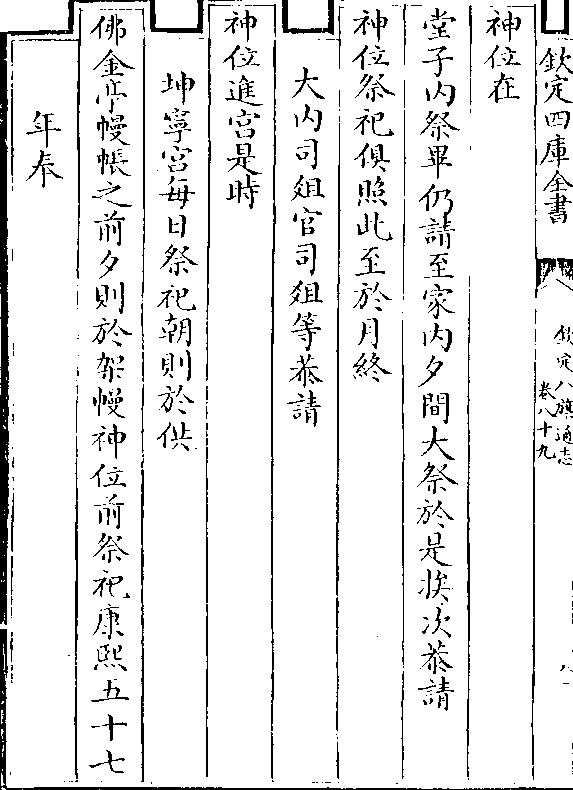 欽定四庫全書
欽定八旗通志
卷八十九
神位在
堂子内祭畢仍請至家内夕間大祭於是挨次恭請
神位祭祀俱照此至於月終
大内司俎官司俎等恭請
神位進宫是時
坤寧宫每日祭祀朝則於供
佛金亭幔帳之前夕則於架幔神位前祭祀康熙五十七
年奉